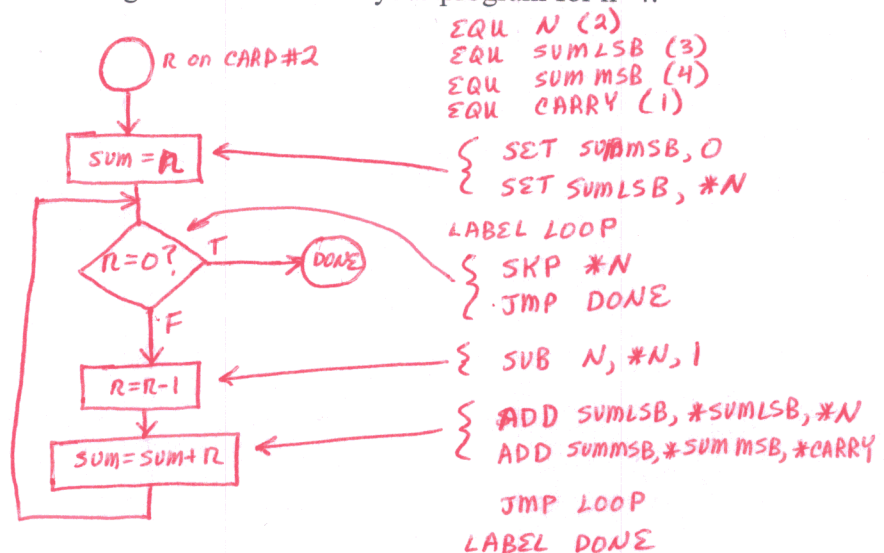 program for
n on CARD #2
SUM = n
n=0?
T
DONE
F
n=n-1
SUM=SUM+n
EQU N (2)
EQU SUMLSB (3)
EQU SUMMSB (4)
EQU CARRY (1)
SET SUMMSB, 0
SET SUMLSB, *N
LABEL LOOP
SKP *N
JMP DONE
SUB N, *N, 1
ADD SUMLSB, *SUMLSB, *N
ADD SUMMSB, *SUMMSB, *CARRY
JMP LOOP
LABEL DONE